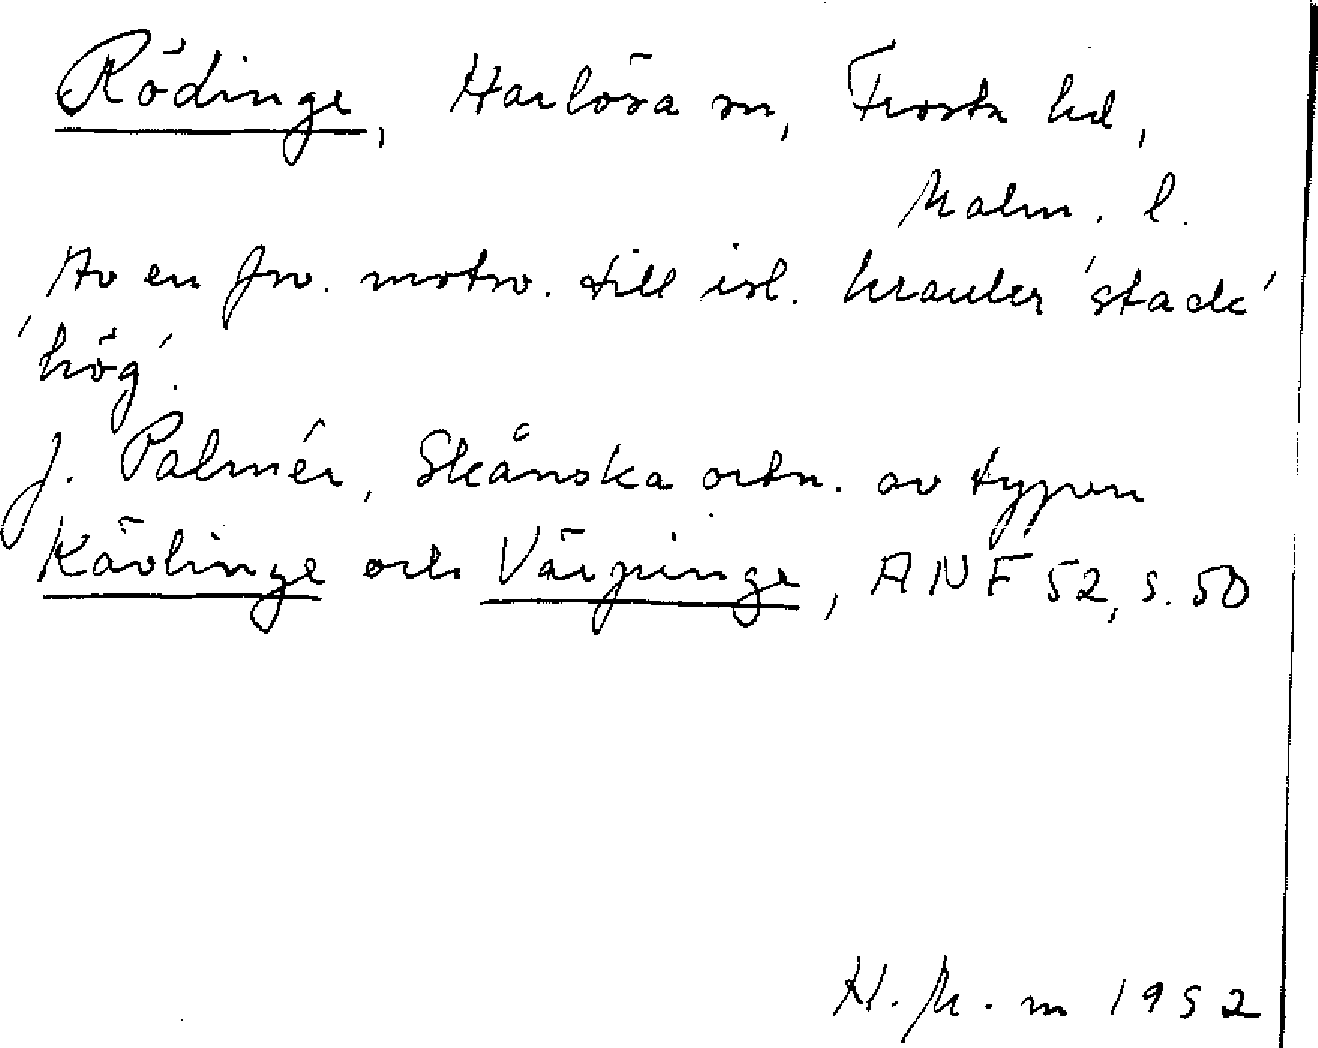 Rödinge, Harlösa sn, Frosta hd,
Malm. l.
Av en fsv. motsv. till isl. hrauker 'stack'
'hög'.
J. Palmér, Skånska ortn. av typen
Kävlinge och Värpinge, ANF 52, s. 50
H. M. m 1952